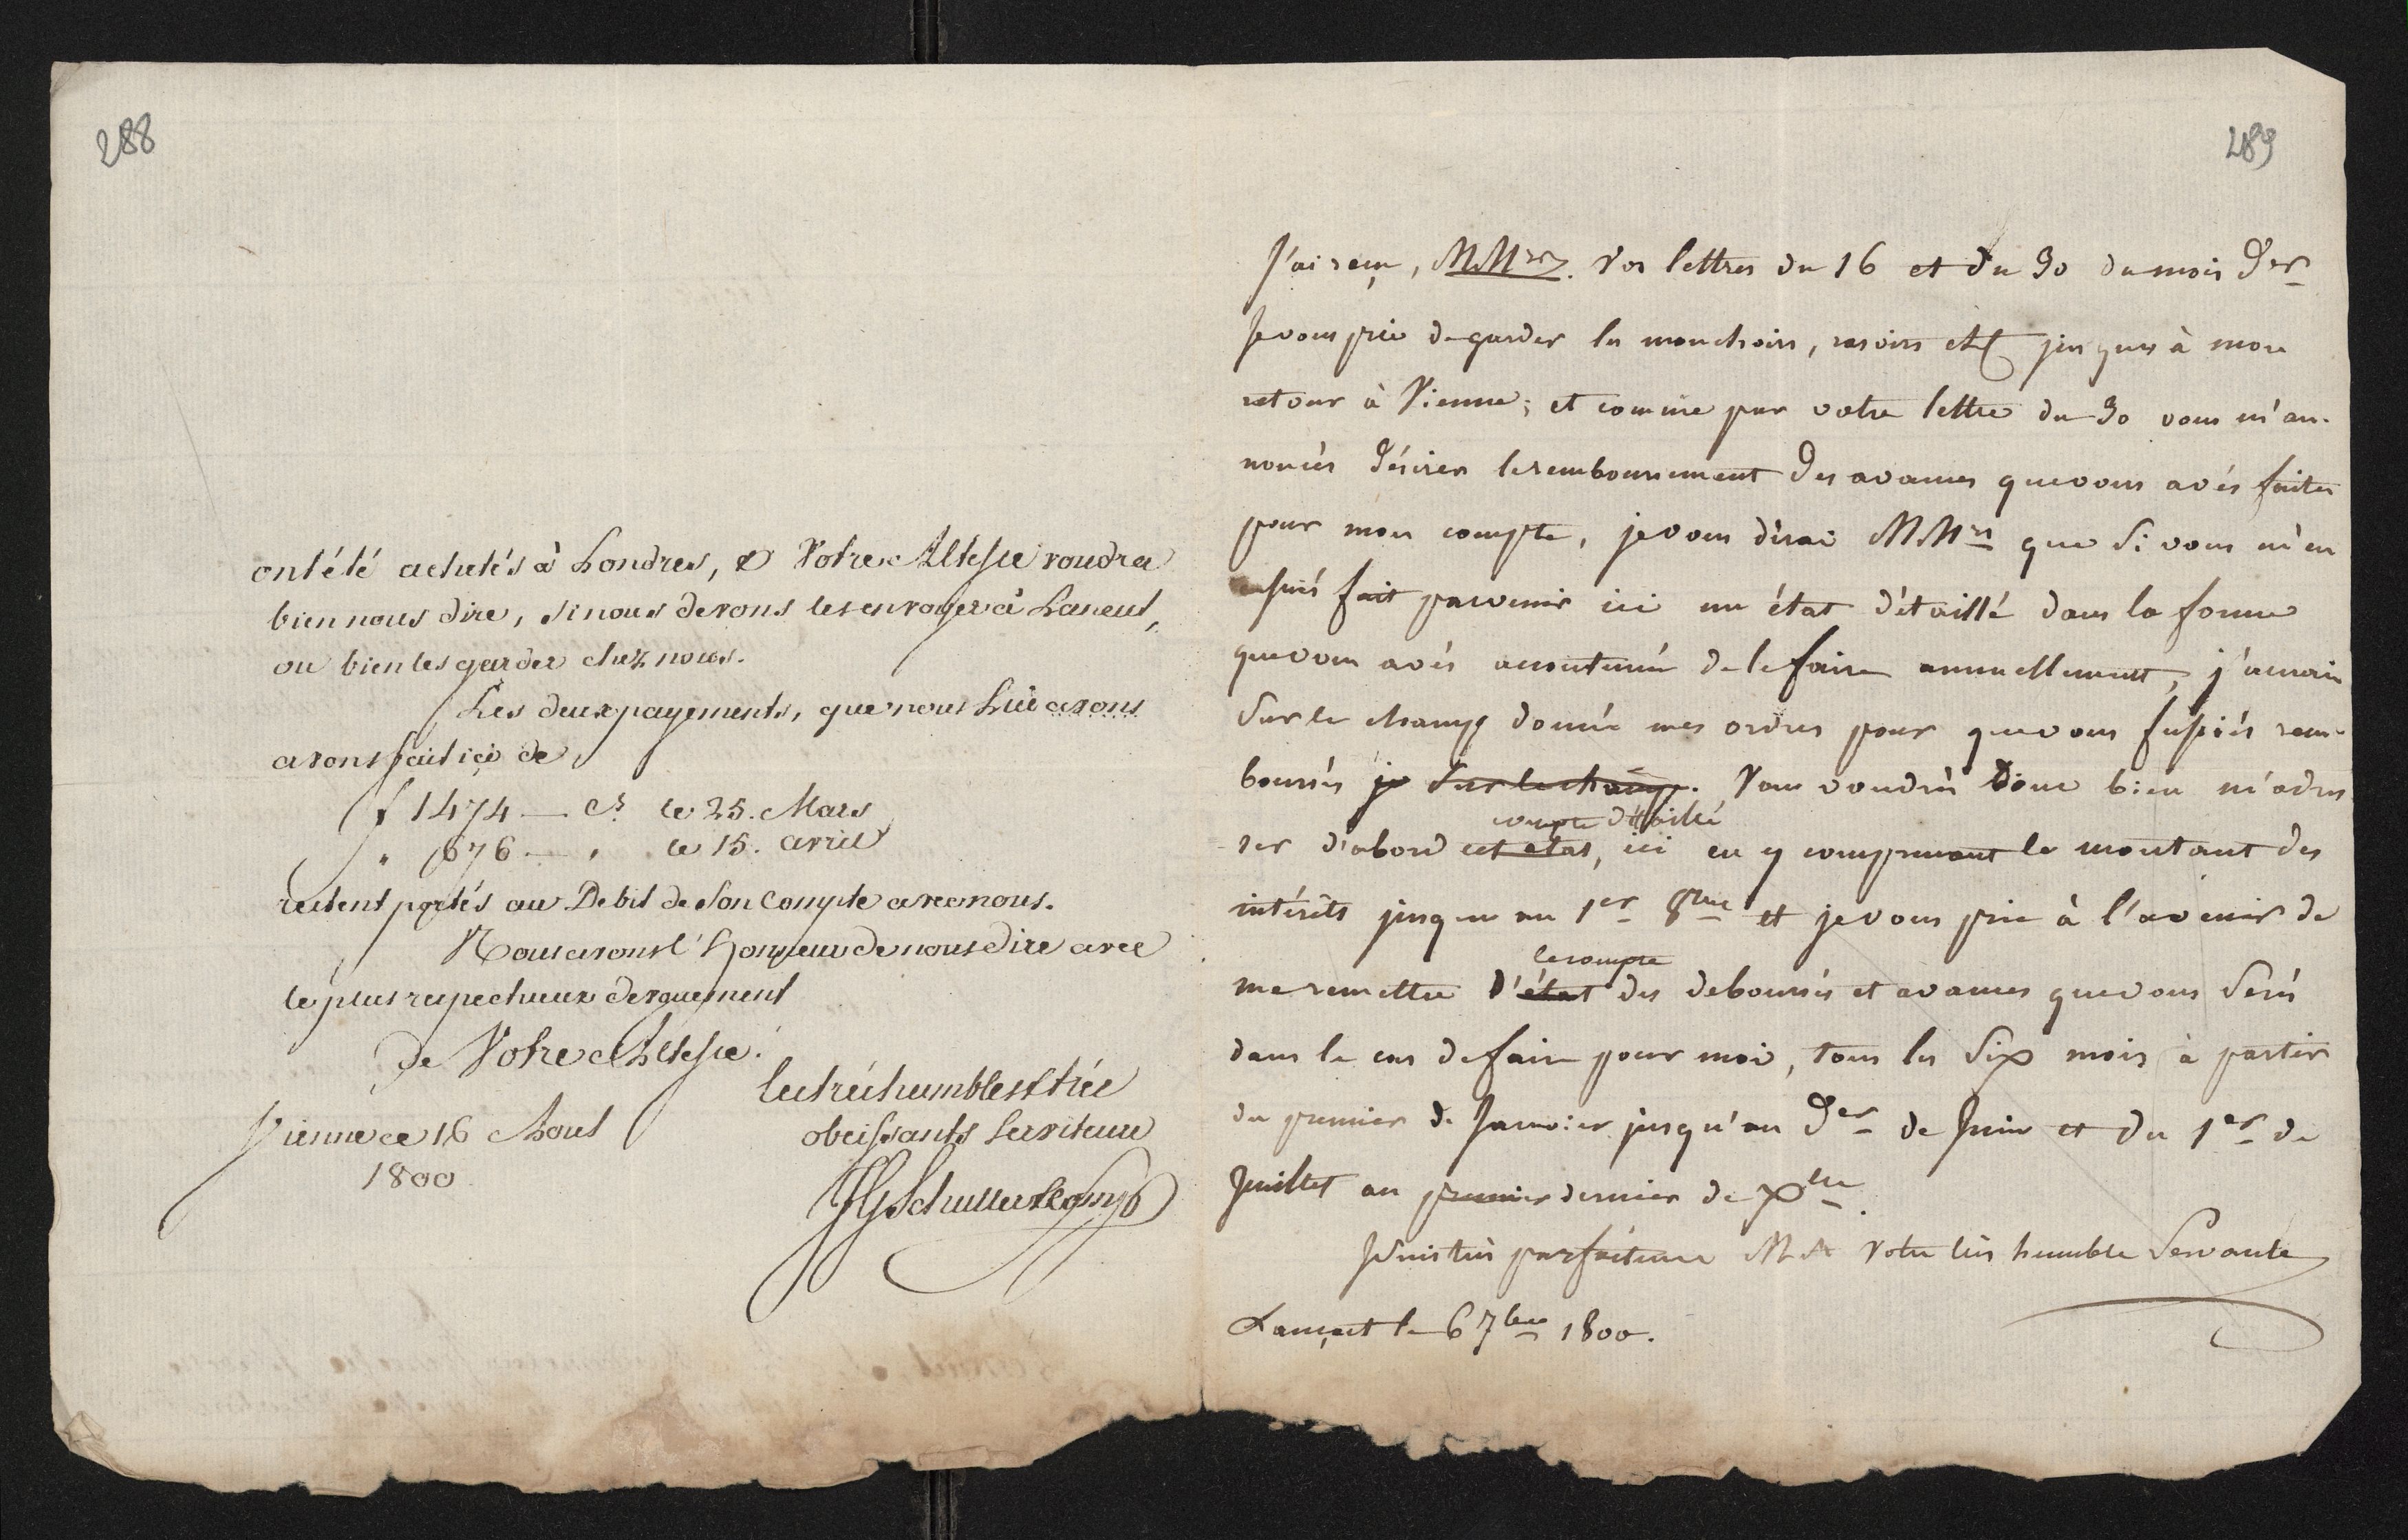 288
ont été achetés à Londres, & Votre Altesse voudra
bien nous dire, si nous devons les envoyer à Lancut,
ou bien les garder chez nous.
Les deux payements, que nous Lui avons
avons fait ici de
f 1474 — Ct le 25. Mars
" 676 — " le 15. avril
restent portés au Debit de Son Compte avec nous.
Nous avons l'Honneur de nous dire avec
le plus respectueux devouement
de Votre Altesse.
Les très humbles & très
obeissants Serviteurs
Vienne ce 16 Aout
1800
289
J'ai reçu, MMrs. Vos lettres du 16 et du 30 du mois Der
Je vous prie de garder les mouchoirs, rasoirs etc jusques à mon
retour à Vienne; et comme par votre lettre du 30 vous m'an-
noncés désirer le remboursement des avances que vous avés faites
pour mon compte, je vous dirai MMrs que si vous m'en
eussiés fait parvenir ici un état détaillé dans la forme
que vous avés accoutumé de le faire annuellement, j'aurois
sur le champ donné mes ordres pour que vous fussiés rem-
boursés je sur le champ. Vous voudrés donc bien m'adres
compte détaillé
ser d'abord cet état, ici en y comprenant le montant des
intérêts jusqu'au 1er 8bre et je vous prie à l'avenir de
le compte
me remettre l'état des deboursés et avances que vous serés
dans le cas de faire pour moi, tous les six mois à partir
du premier de Janvier jusqu'au Der de Juin et du 1er de
Juillet au premier dernier de Xbre.
Je suis très parfaitement MM votre très humble Servante
Lançut le 6 7bre 1800.